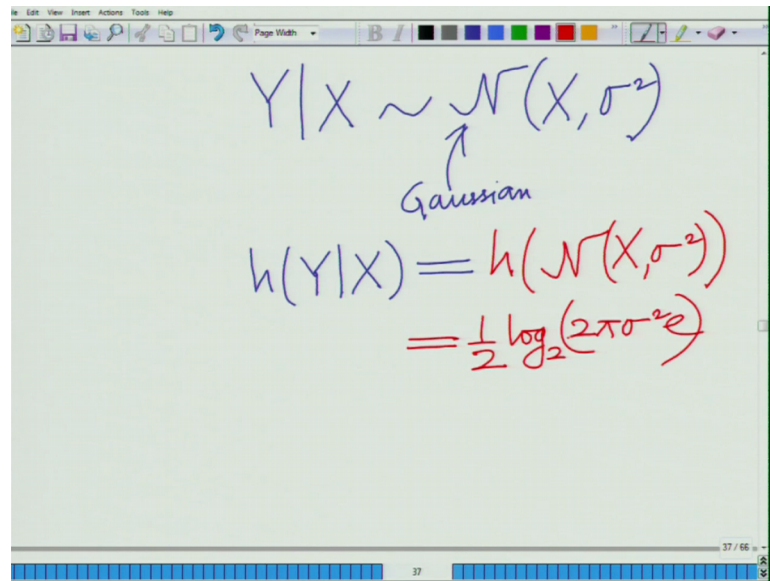 le Edit View Insert Actions Tools Help
Page Width
B I
Y|X ~ N(X, σ²)
Gaussian
h(Y|X) = h(N(X,σ²))
= 1/2 log₂(2πσ²e)
37 / 66
37